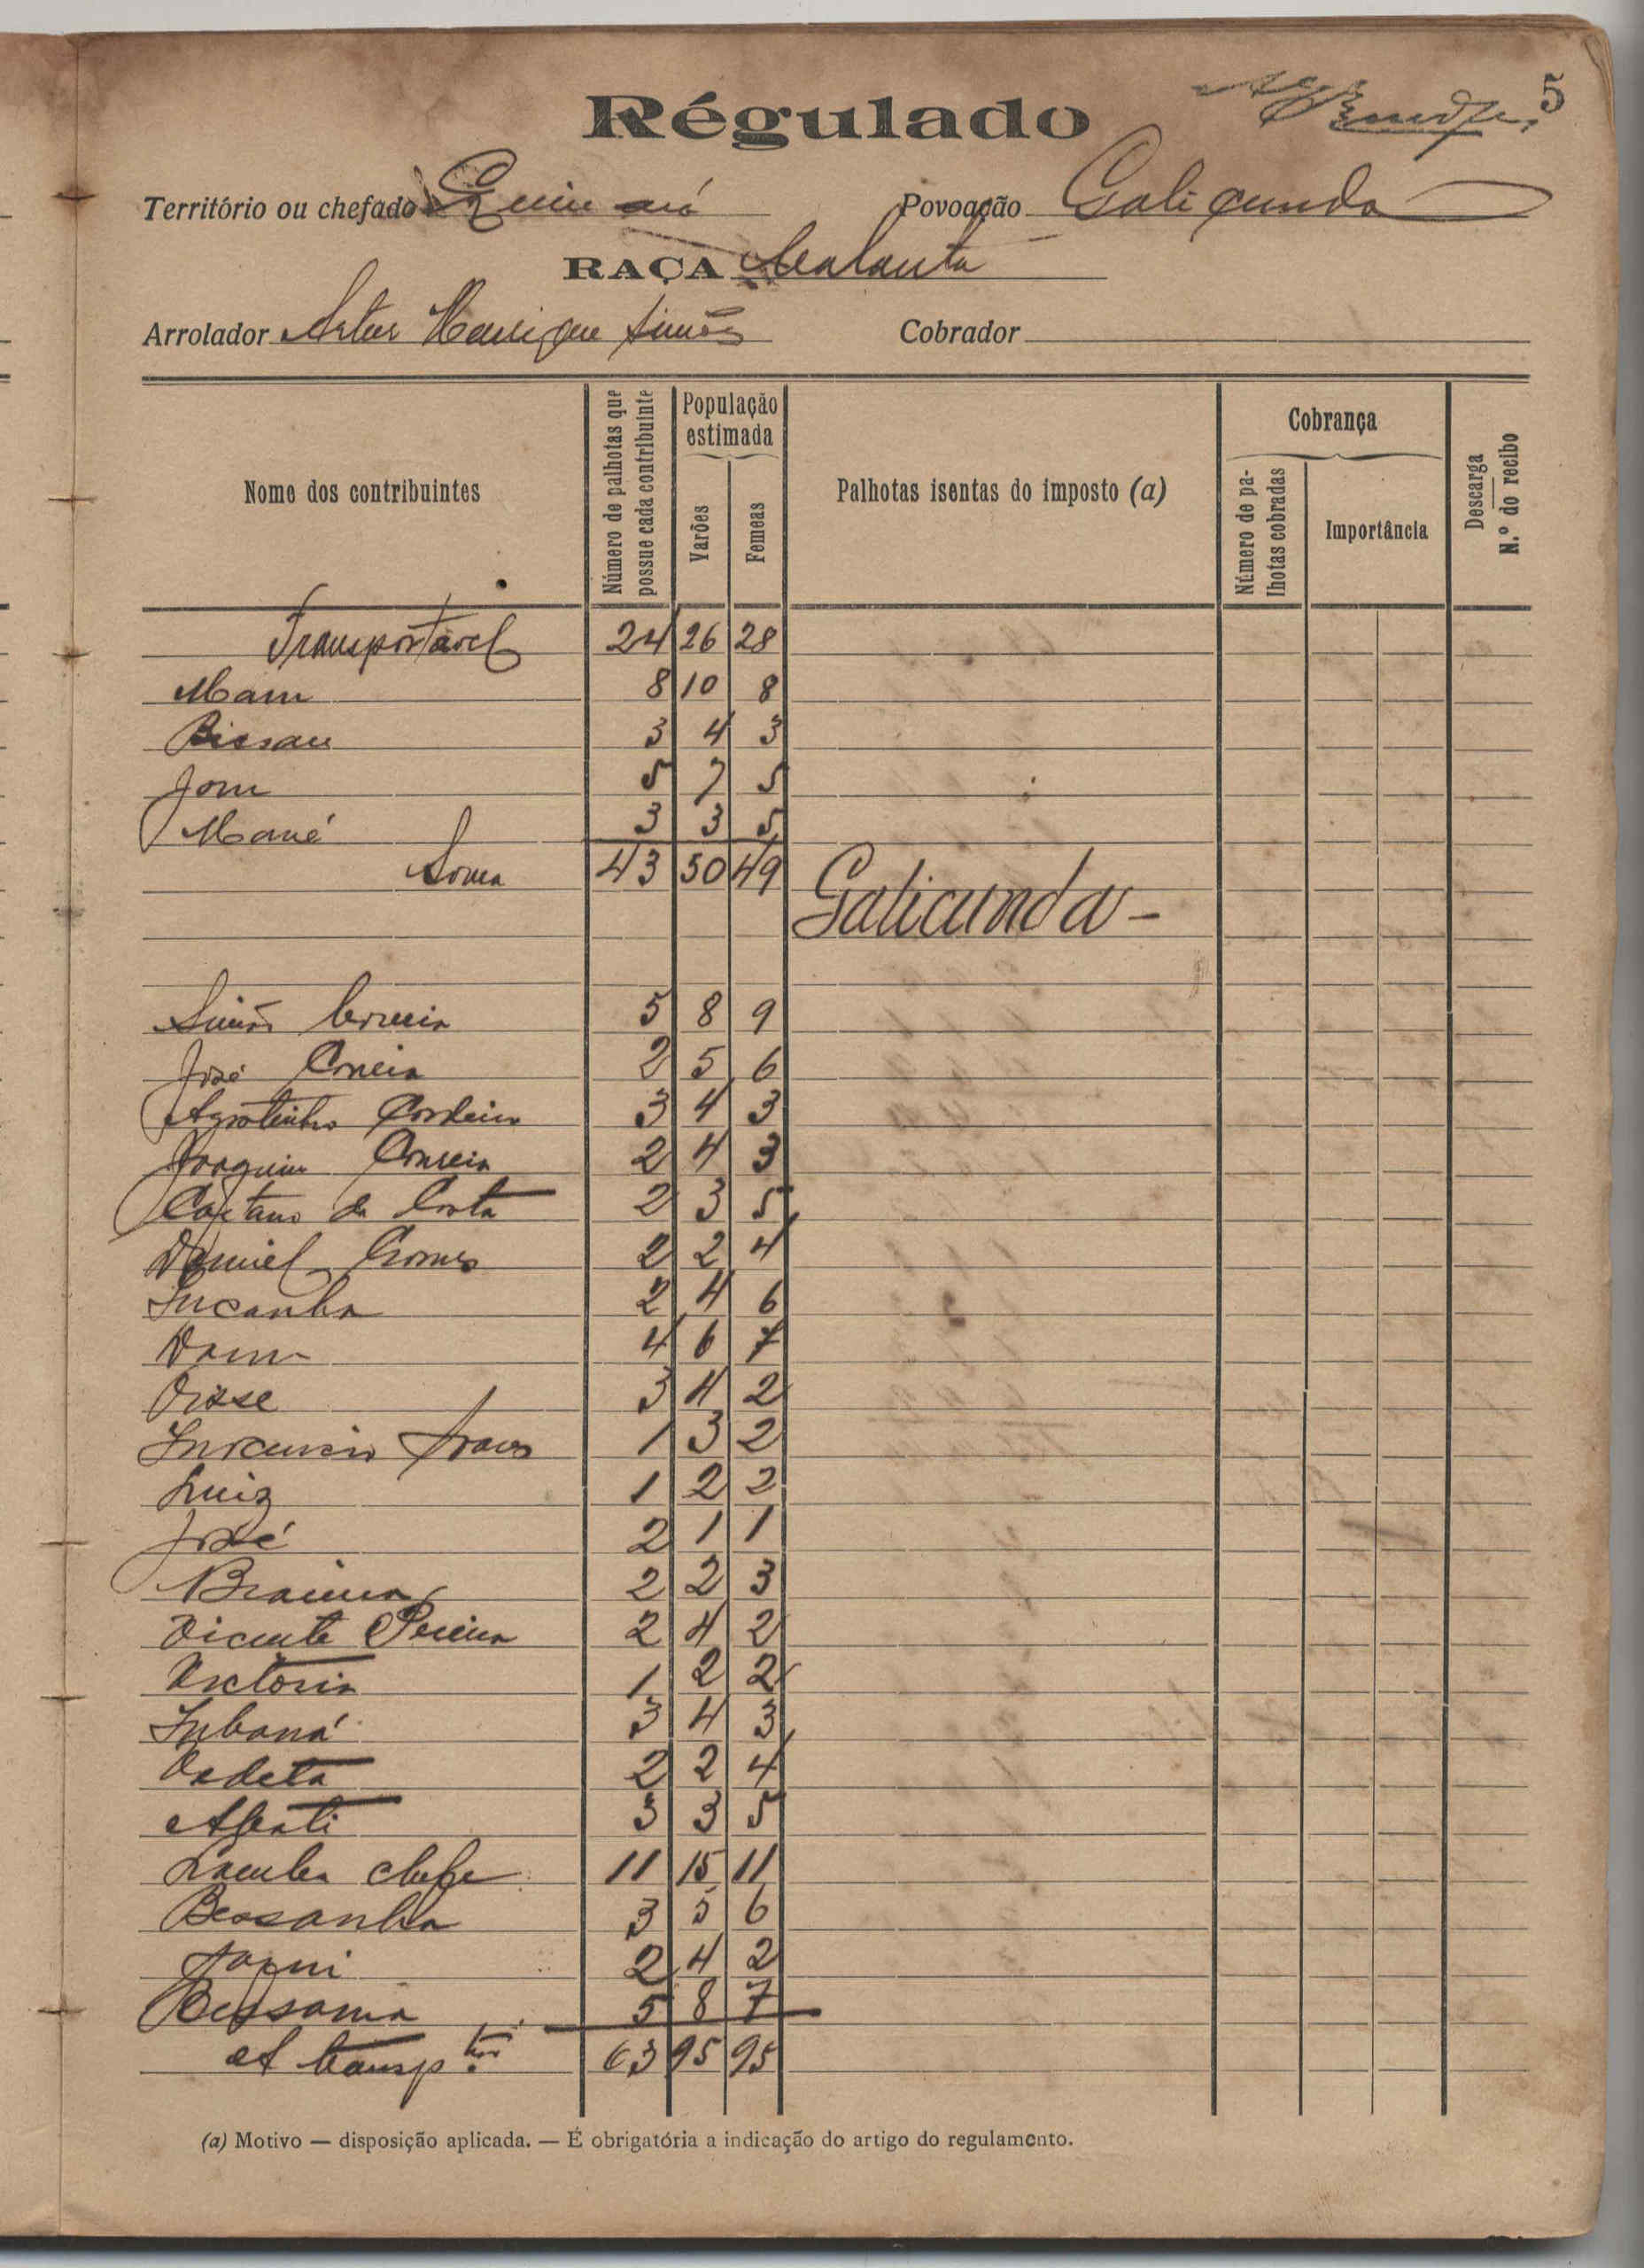 5
Régulado
Território ou chefado Povoação Galicunda
RAÇA Balanta
Arrolador Artur Henrique Simões Cobrador
Nome dos contribuintes
Número de palhotas que possue cada contribuinte
População estimada
Varões
Femeas
Palhotas isentas do imposto (a)
Cobrança
Número de palhotas cobradas
Importância
Descarga
N.º do recibo
Transportável 24 26 28
Mam 8 10 8
Bissau 3 4 3
Jom 5 7 5
Mané 3 3 5
Soma 43 50 49
Galicunda -
Simão Correia 5 8 9
José Correia 2 5 6
Agostinho Cordeiro 3 4 3
Joaquim Correia 2 4 3
Caetano da Costa 2 3 5
Daniel Gomes 2 2 4
Incanha 2 4 6
Dam 4 6 7
3 4 2
1 3 2
Luiz 1 2 2
José 2 1 1
Braima 2 2 3
Vicente Pereira 2 4 2
Victoria 1 2 2
Inbaná 3 4 3
2 2 4
3 3 5
chefe 11 15 11
Bessanha 3 5 6
2 4 2
Bessama 5 8 7
A transp.tar 63 95 95
(a) Motivo — disposição aplicada. — É obrigatória a indicação do artigo do regulamento.